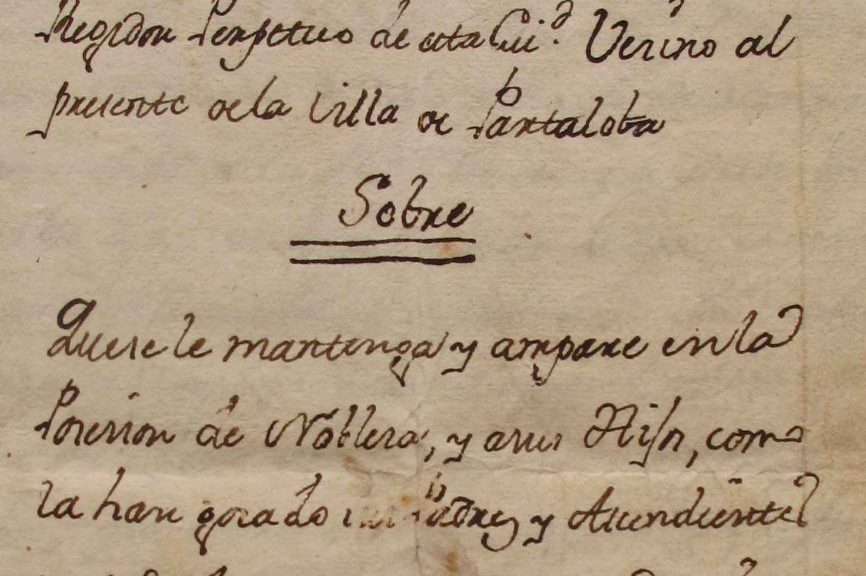 Regidor Perpetuo de esta Ciu.d Vecino al
presente de la Villa de Pantaloba
Sobre
Que se le mantenga y ampare en la
Posesion de Nobleza, y a sus Hijos, como
la han gozado sus Padres y Ascendientes